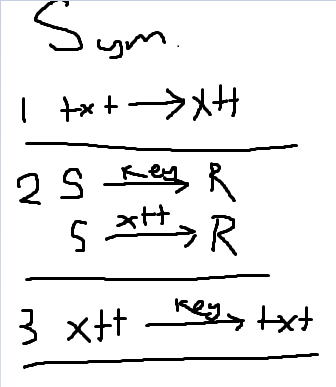 Sym.
1 txt → xtt
2 S key→ R
S xtt→ R
3 xtt key→ txt